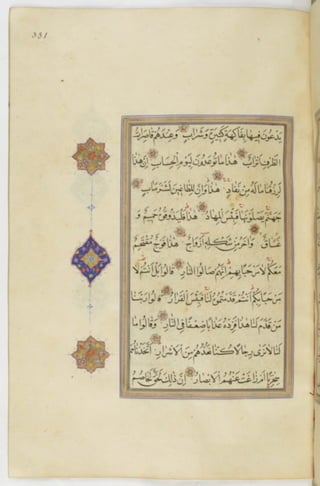 331
يَدْعُونَ فِيهَا بِفَاكِهَةٍ كَثِيرَةٍ وَشَرَابٍ وَعِنْدَهُمْ قَاصِرَاتُ
الطَّرْفِ اَتْرَابٌ هَذَا مَا تُوعَدُونَ لِيَوْمِ الْحِسَابِ اِنَّ هَذَا
لَرِزْقُنَا مَا لَهُ مِنْ نَفَادٍ هَذَا وَاِنَّ لِلطَّاغِينَ لَشَرَّ مَآبٍ
جَهَنَّمَ يَصْلَوْنَهَا فَبِئْسَ الْمِهَادُ هَذَا فَلْيَذُوقُوهُ حَمِيمٌ وَ
غَسَّاقٌ وَآخَرُ مِنْ شَكْلِهِ اَزْوَاجٌ هَذَا فَوْجٌ مُقْتَحِمٌ
مَعَكُمْ لَا مَرْحَبًا بِهِمْ اِنَّهُمْ صَالُوا النَّارِ قَالُوا بَلْ اَنْتُمْ لَا
مَرْحَبًا بِكُمْ اَنْتُمْ قَدَّمْتُمُوهُ لَنَا فَبِئْسَ الْقَرَارُ قَالُوا رَبَّنَا
مَنْ قَدَّمَ لَنَا هَذَا فَزِدْهُ عَذَابًا ضِعْفًا فِي النَّارِ وَقَالُوا مَا
لَنَا لَا نَرَى رِجَالًا كُنَّا نَعُدُّهُمْ مِنَ الْاَشْرَارِ اَتَّخَذْنَاهُمْ
سِخْرِيًّا اَمْ زَاغَتْ عَنْهُمُ الْاَبْصَارُ اِنَّ ذَلِكَ لَحَقٌّ تَخَاصُمُ